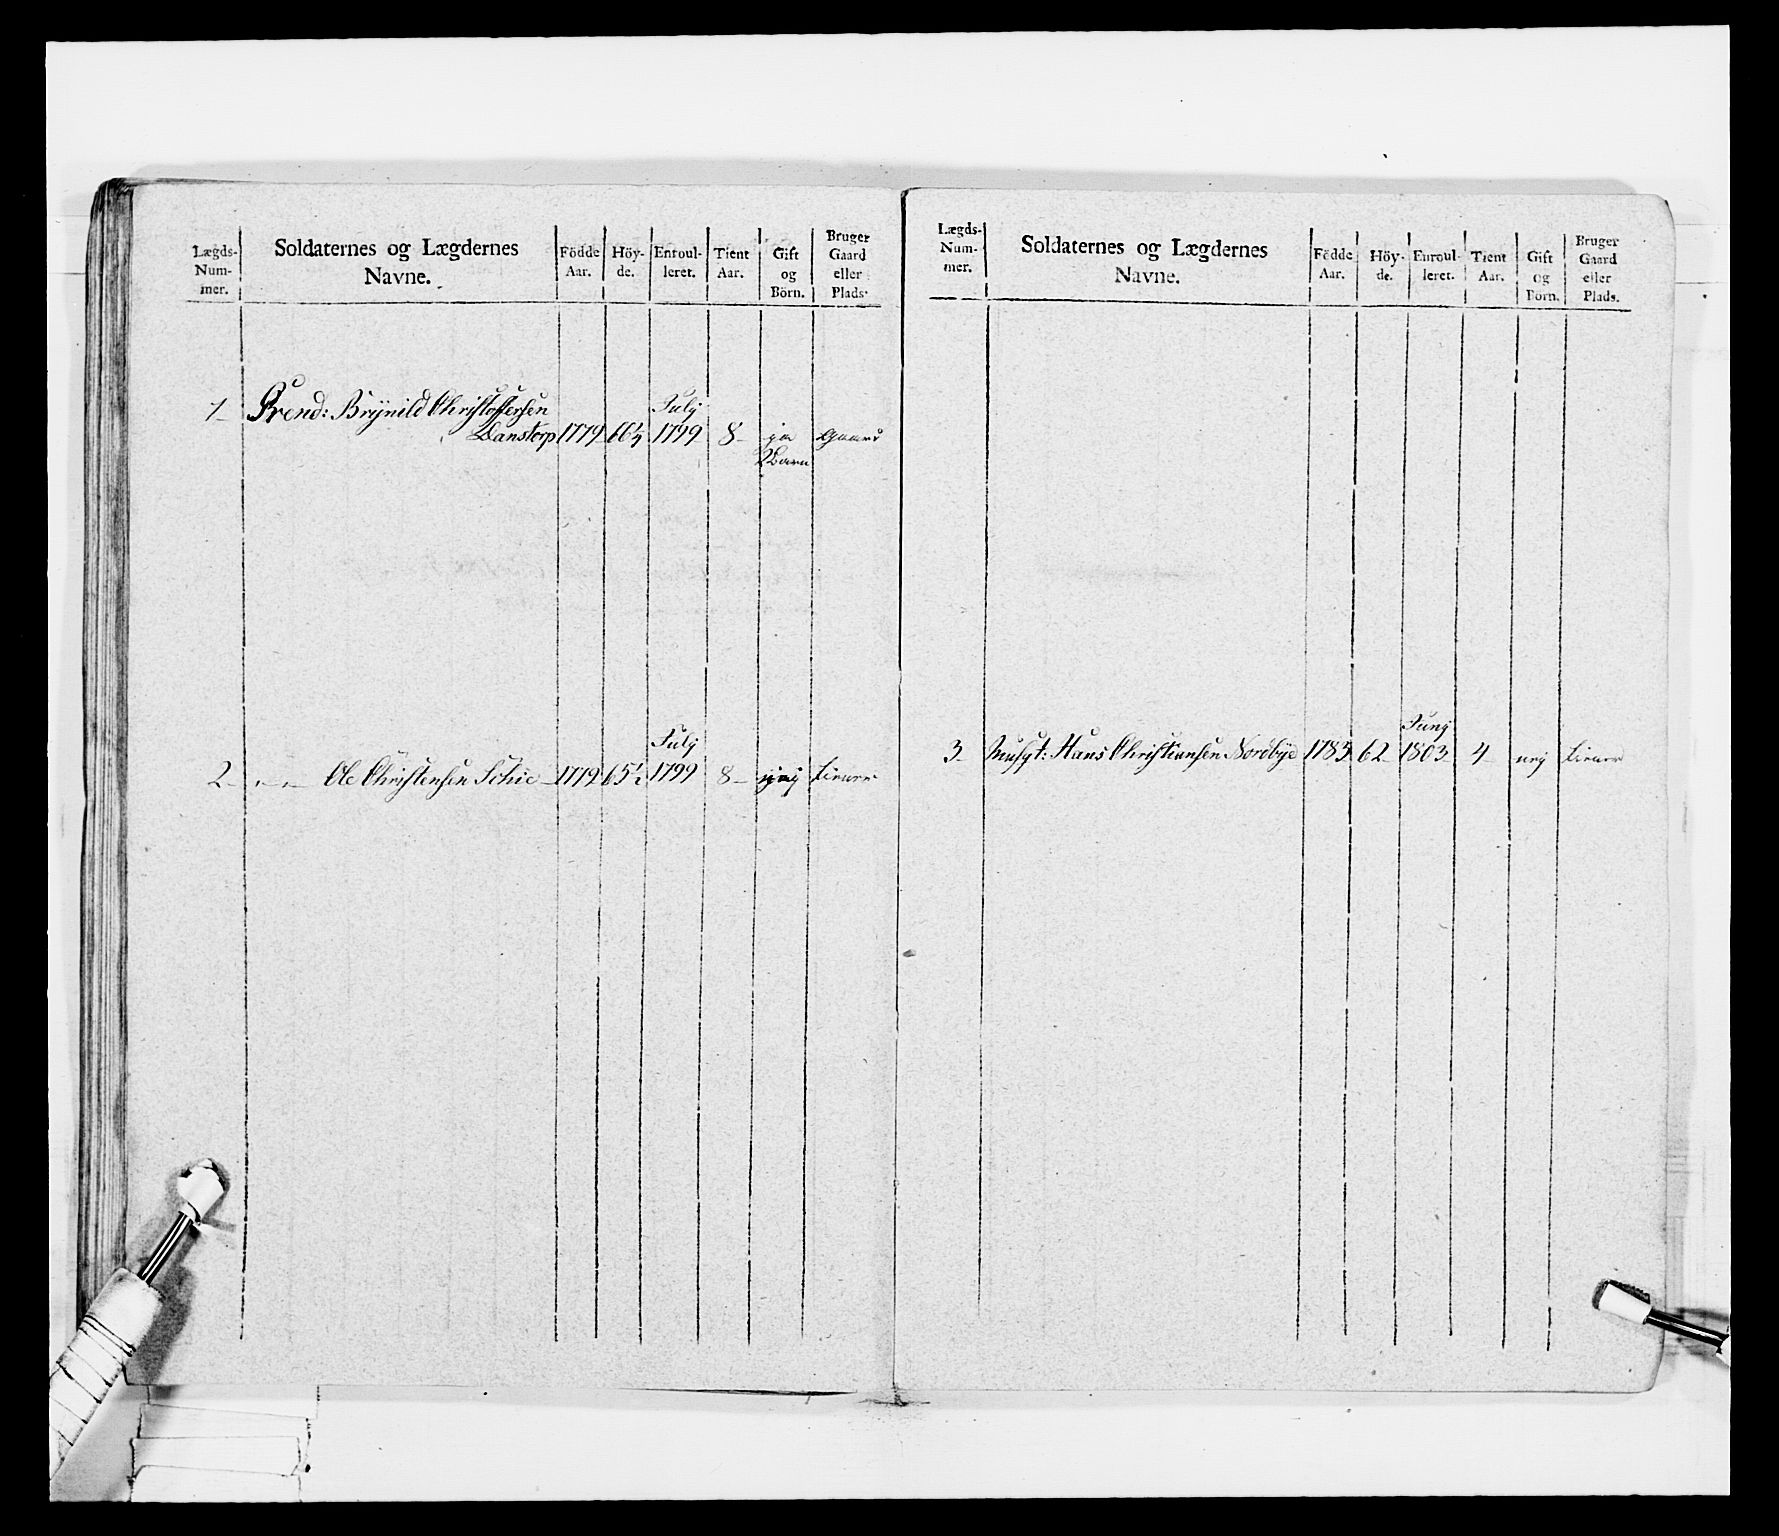 Lægds-Num-mer.
Soldaternes og Lægdernes Navne.
Födde Aar.
Höy-de.
Enroul-leret.
Tient Aar.
Gift og Börn.
Bruger Gaard eller Plads.
July
1 Grend: Brynild Christoffersen
Danstorp 1779 66½ 1799 8 ja Gaard
2 Barn
July
2 Ole Christensen Schie 1779 65½ 1799 8 nej tiener
Lægds-Num-mer.
Soldaternes og Lægdernes Navne.
Födde Aar.
Höy-de.
Enroul-leret.
Tient Aar.
Gift og Börn.
Bruger Gaard eller Plads.
Juny
3 Musqt: Hans Christiansen Nordbye 1783 62 1803 4 nej tiener